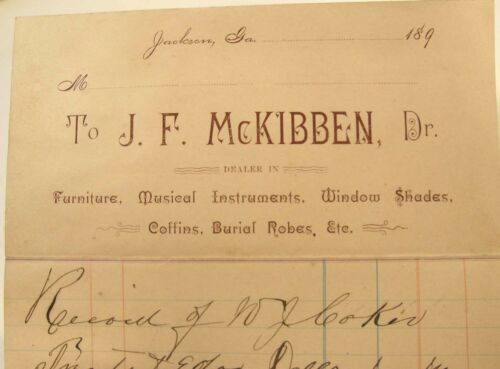 Jackson, Ga. 189
M
To J. F. McKIBBEN, Dr.
DEALER IN
Furniture, Musical Instruments, Window Shades,
Coffins, Burial Robes, Etc.
Record of W J Coker